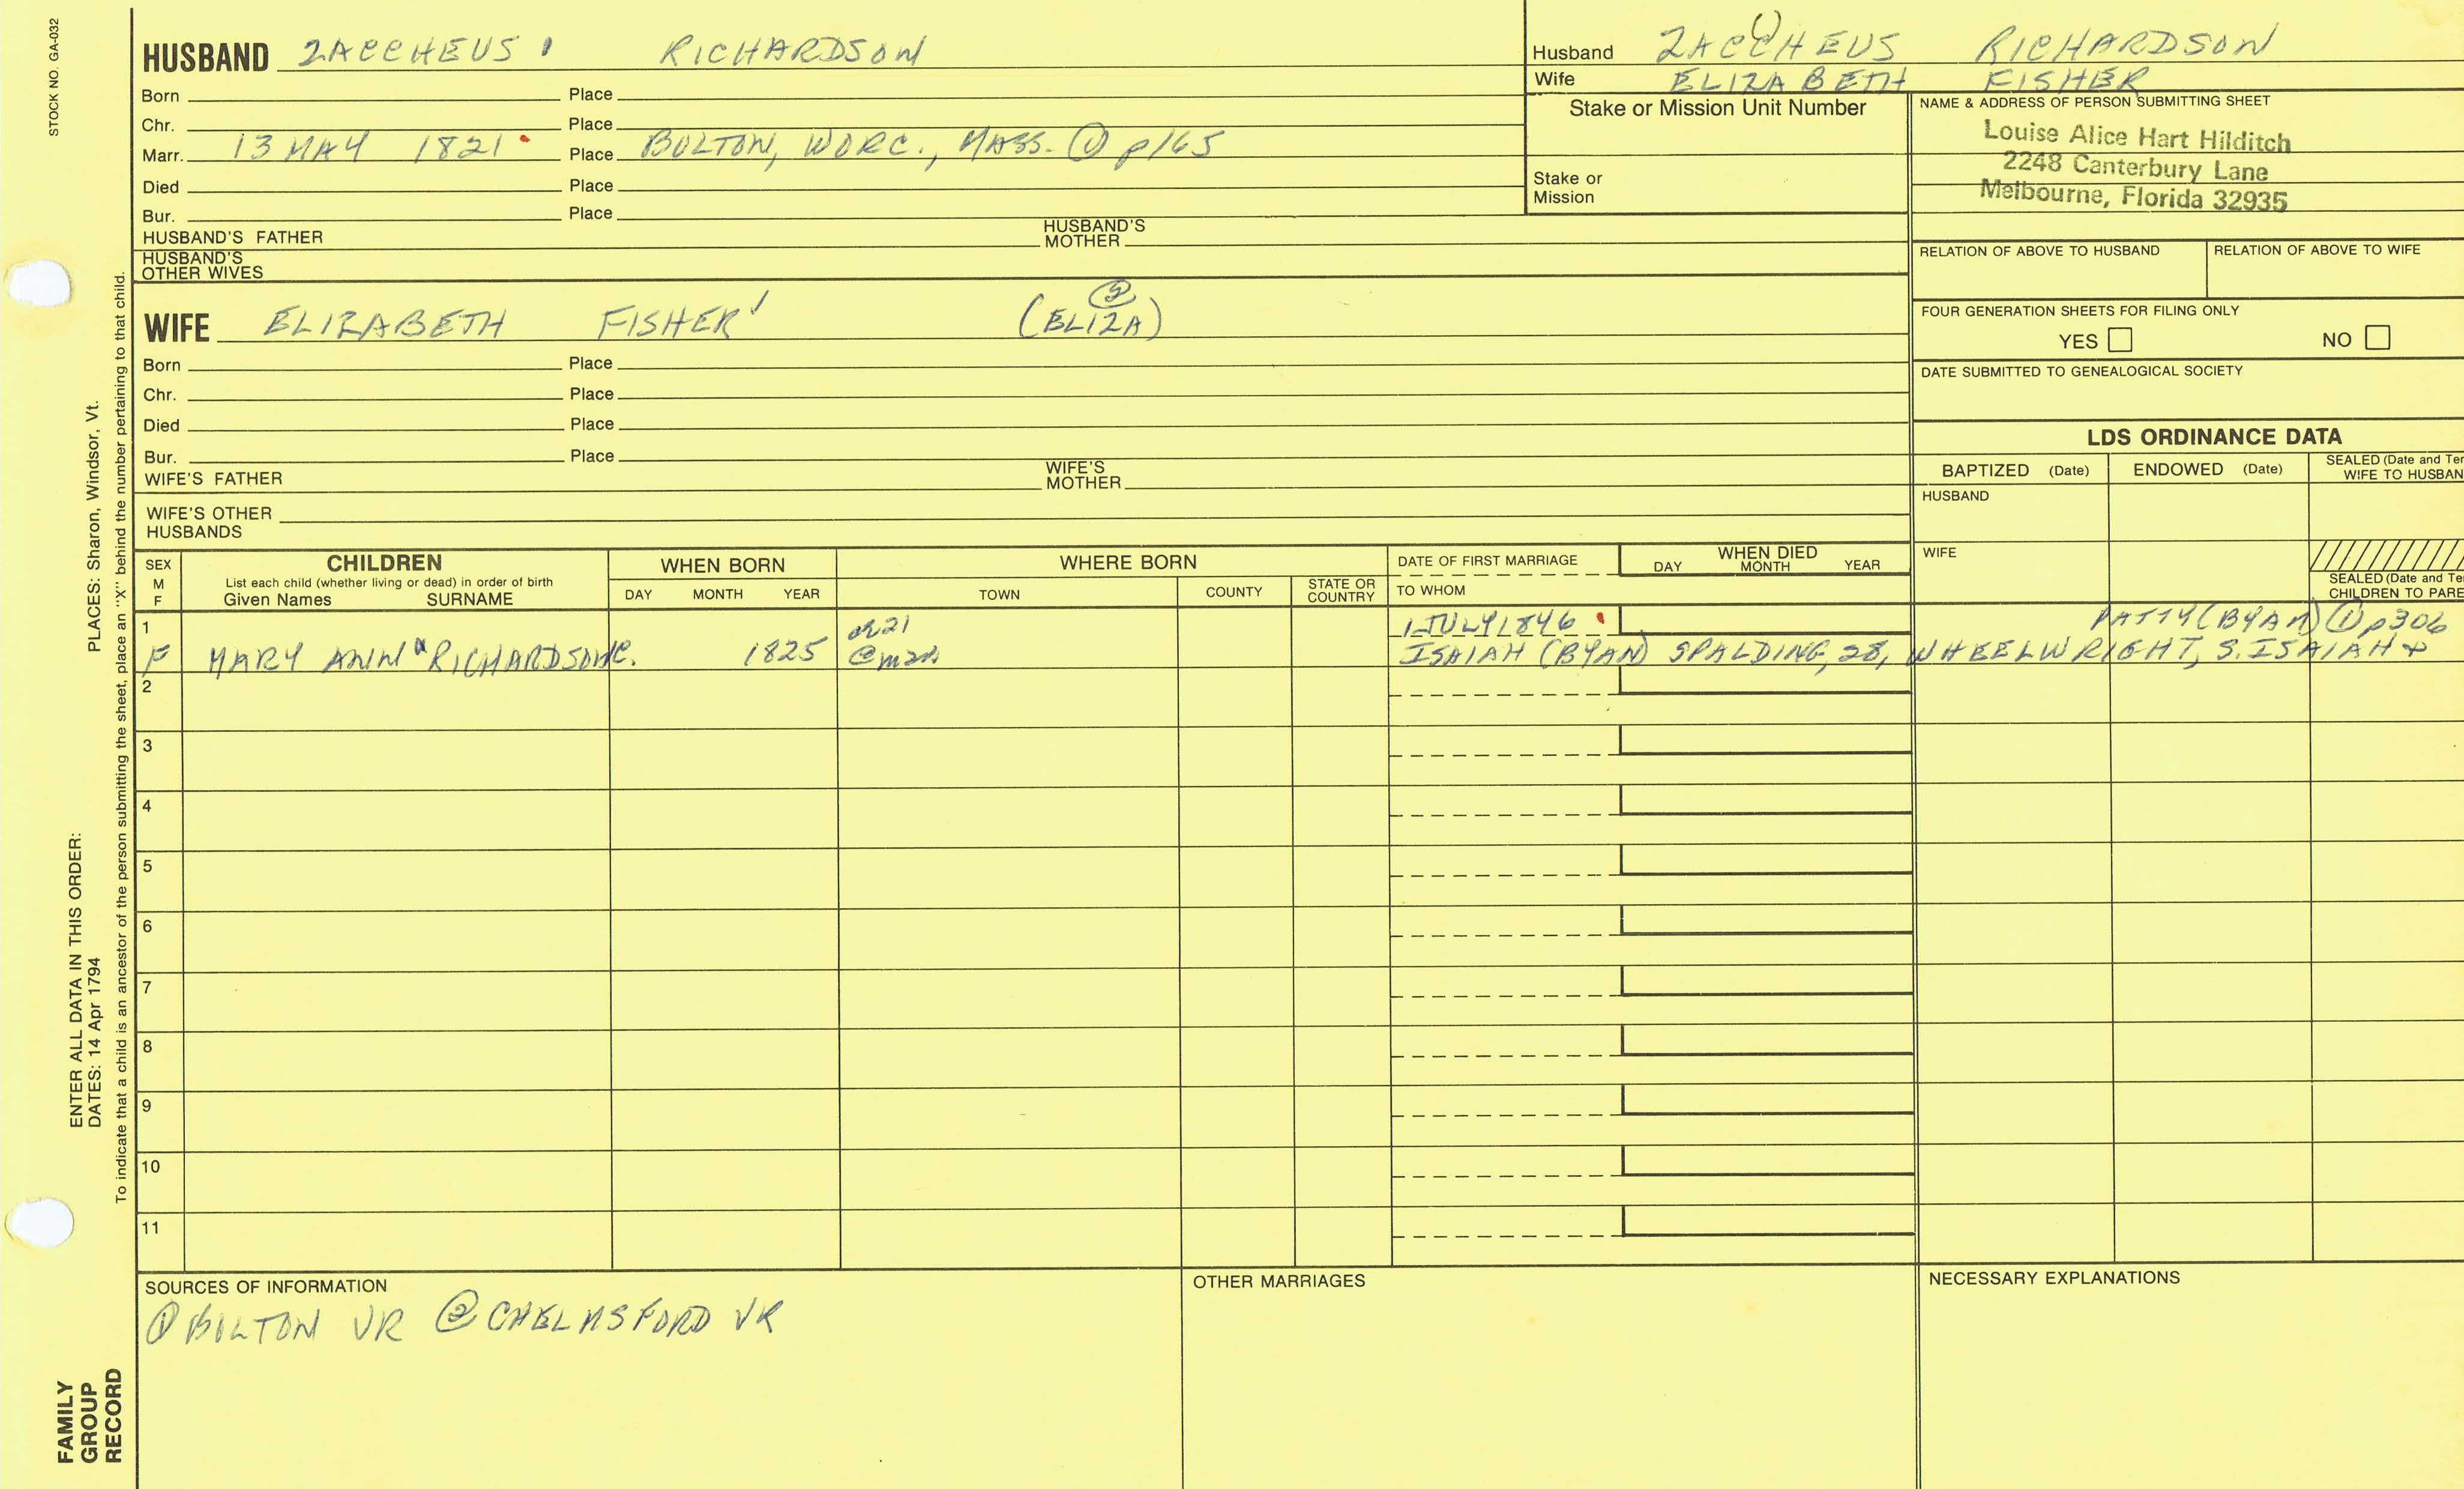 STOCK NO. GA-032
HUSBAND ZACCHEUS 1 RICHARDSON
Born Place
Chr. Place
Marr. 13 MAY 1821 Place BOLTON, WORC., MASS. ① p165
Died Place
Bur. Place
HUSBAND'S FATHER HUSBAND'S MOTHER
HUSBAND'S OTHER WIVES
WIFE ELIZABETH FISHER 1 (ELIZA) ②
Born Place
Chr. Place
Died Place
Bur. Place
WIFE'S FATHER WIFE'S MOTHER
WIFE'S OTHER HUSBANDS
Husband ZACCHEUS RICHARDSON
Wife ELIZABETH FISHER
Stake or Mission Unit Number
Stake or Mission
NAME & ADDRESS OF PERSON SUBMITTING SHEET
Louise Alice Hart Hilditch
2248 Canterbury Lane
Melbourne, Florida 32935
RELATION OF ABOVE TO HUSBAND RELATION OF ABOVE TO WIFE
FOUR GENERATION SHEETS FOR FILING ONLY
YES NO
DATE SUBMITTED TO GENEALOGICAL SOCIETY
LDS ORDINANCE DATA
BAPTIZED (Date) ENDOWED (Date) SEALED (Date and Tem
WIFE TO HUSBAN
HUSBAND
WIFE
SEALED (Date and Te
CHILDREN TO PARE
SEX M F
CHILDREN
List each child (whether living or dead) in order of birth
Given Names SURNAME
WHEN BORN
DAY MONTH YEAR
WHERE BORN
TOWN COUNTY STATE OR COUNTRY
DATE OF FIRST MARRIAGE
TO WHOM
WHEN DIED
DAY MONTH YEAR
1 1 JULY 1846 PATTY (BYAM) ① p306
F MARY ANN RICHARDSON C. 1825 ISAIAH (BYAM) SPALDING, 28, WHEELWRIGHT, S. ISAIAH &
2
3
4
5
6
7
8
9
10
11
SOURCES OF INFORMATION
① BOLTON VR ② CHELMSFORD VR
OTHER MARRIAGES
NECESSARY EXPLANATIONS
ENTER ALL DATA IN THIS ORDER:
DATES: 14 Apr 1794 PLACES: Sharon, Windsor, Vt.
To indicate that a child is an ancestor of the person submitting the sheet, place an "X" behind the number pertaining to that child.
FAMILY
GROUP
RECORD